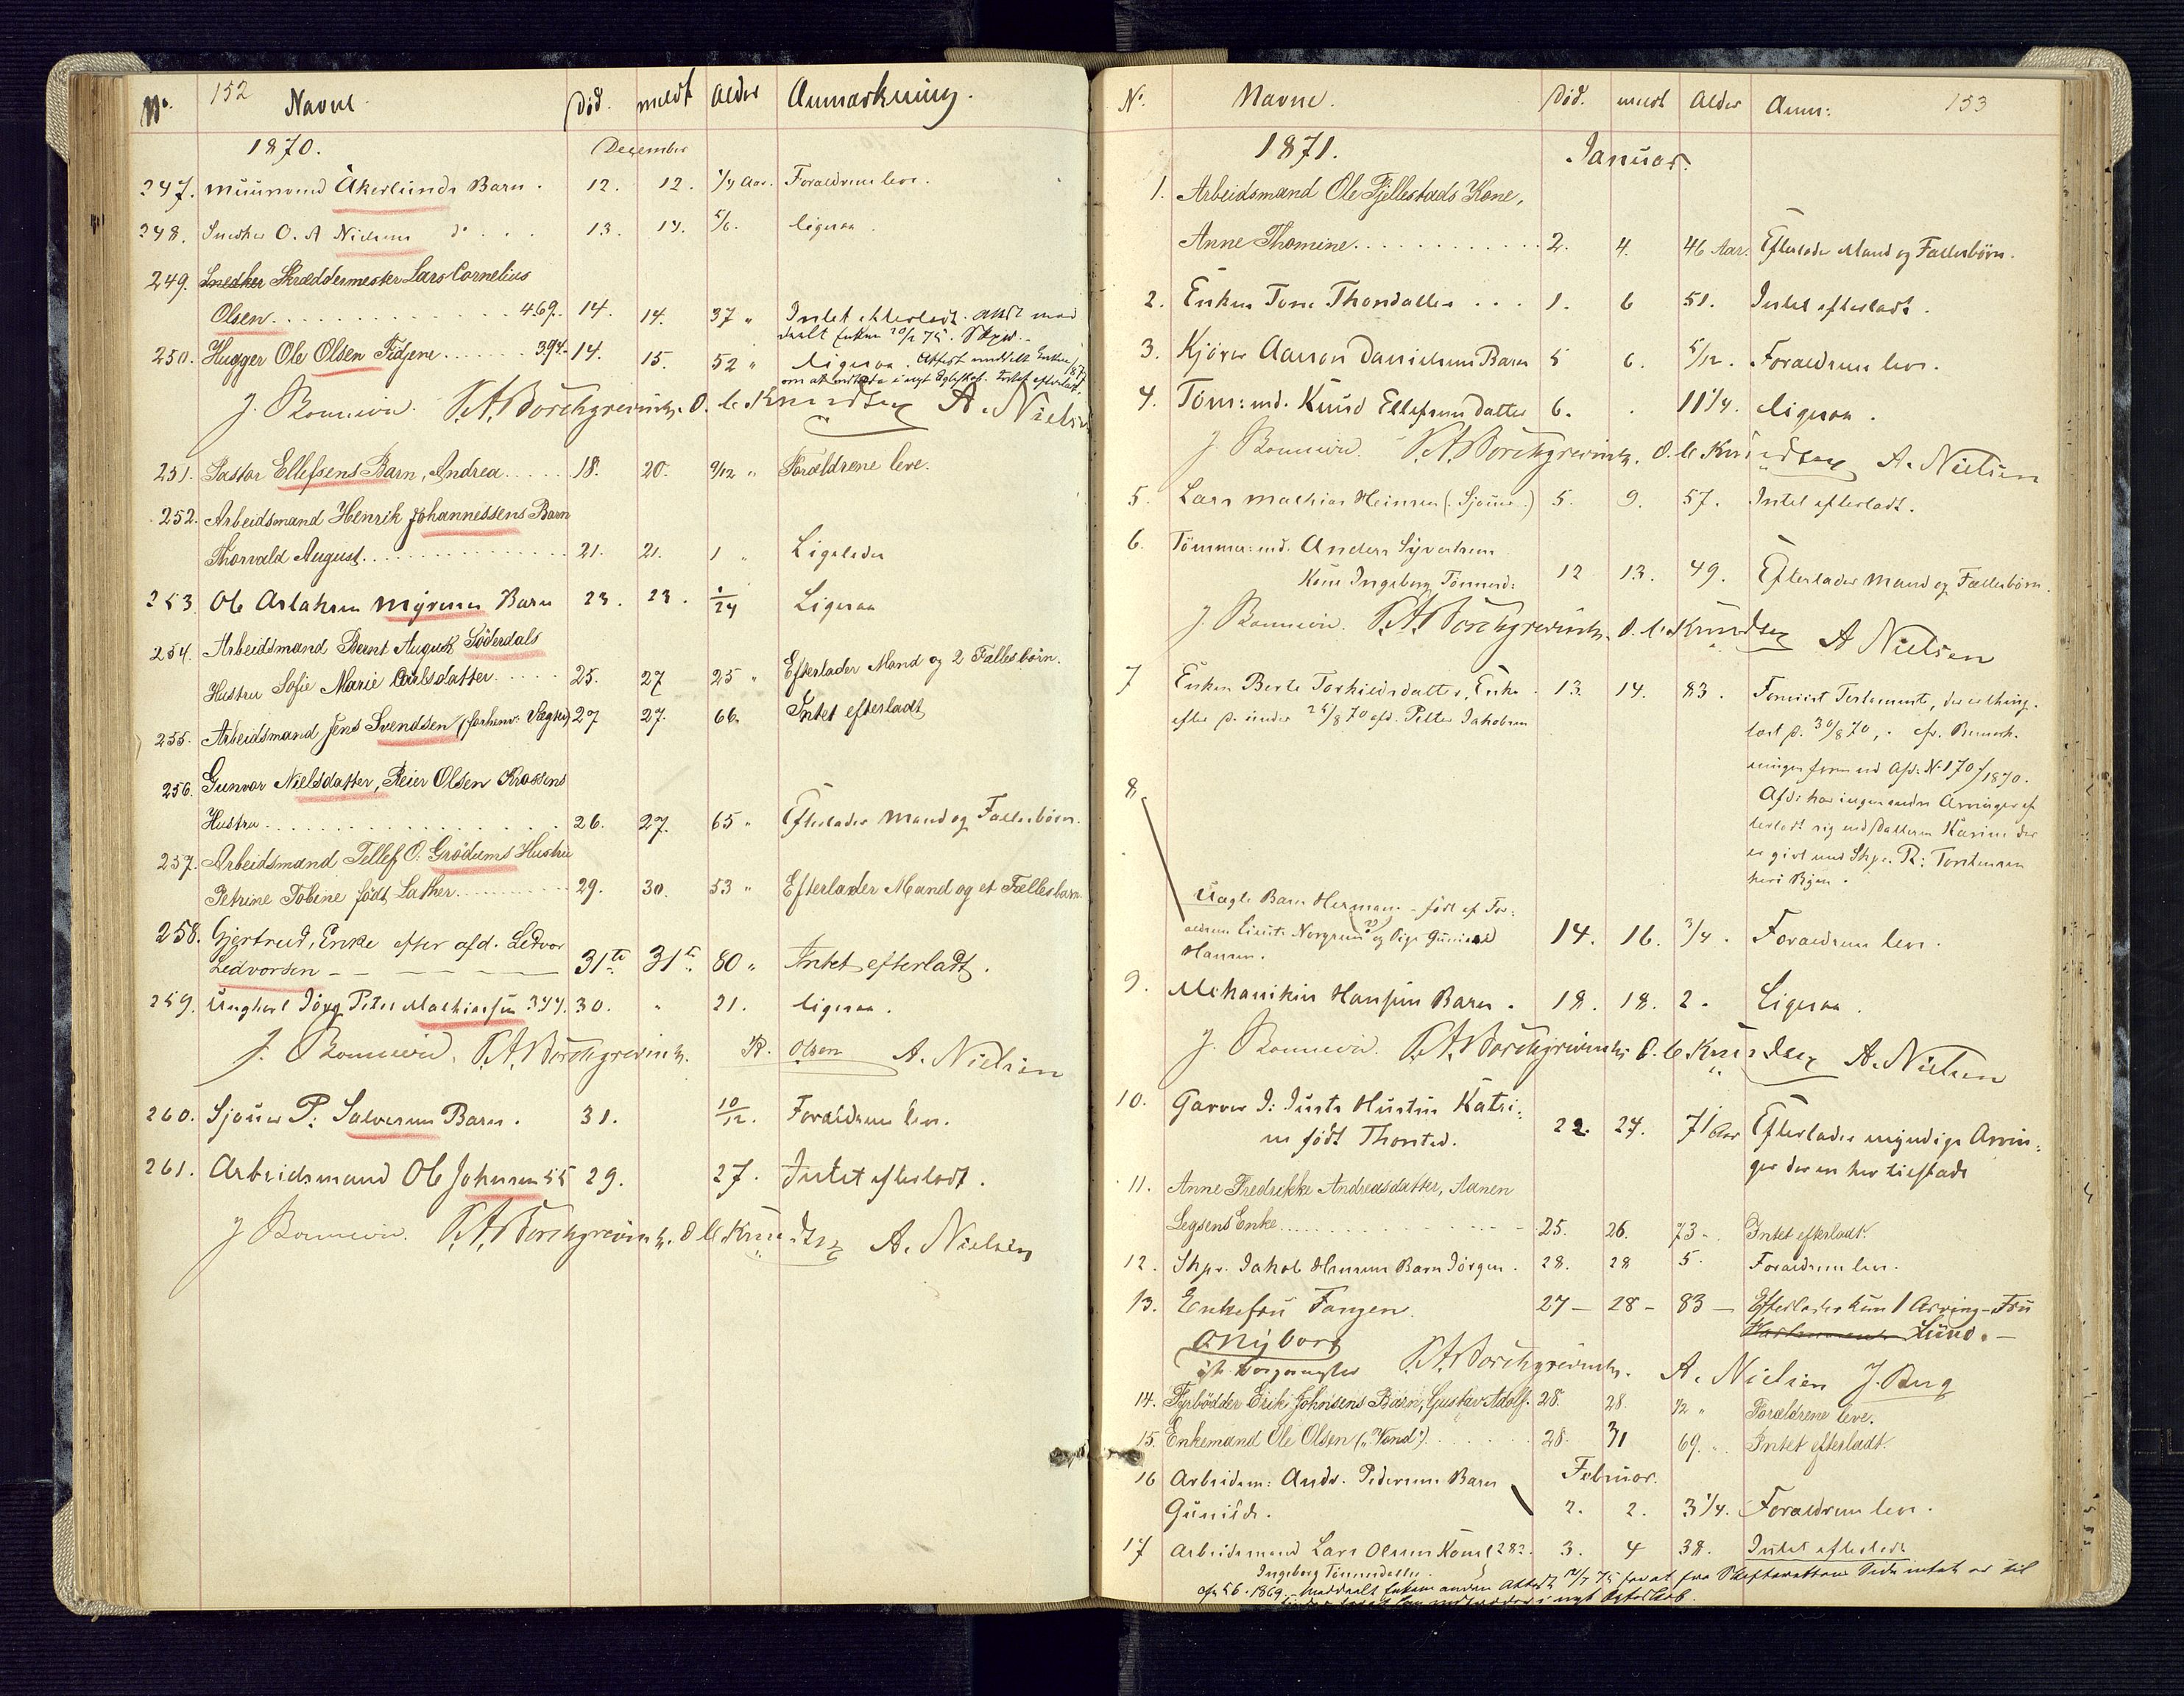 152
No. Navne. Död. meldt Alder Anmærkning.
1870. December
247. Muursvend Åkerlunds Barn. 12. 12. 1/4 Aar. Forældrene leve.
248. Snedker O. A Nielsens do . . . 13. 14. 5/6. ligesaa.
249. Snedker Skræddermester Lars Cornelius
Olsen. . . . . . . 469. 14. 14. 37 " Intet efterladt.
250. Hugger Ole Olsen Fidjene . . . . . 394. 14. 15. 52 " ligesaa.
P.A. Borchgrevink. O. C. Knudsen A. Nielsen
251. Pastor Ellefsens Barn, Andrea. . . . . 18. 20. 9/12 " Forældrene leve.
252. Arbeidsmand Henrik Johannessens Barn
Thorvald August. . . . . . . 21. 21. 1 " Ligeledes
253. Ole Aslaksen Myrenes Barn 23. 23. 1/24 Ligesaa
254. Arbeidsmand Bernt August Söderdals
Hustru Sofie Marie Carlsdatter. . . . . 25. 27 25 " Efterlader Mand og 2 Fællesbörn.
255. Arbeidsmand Jens Svendsen (forhenv: Vægter) 27 27. 66 Intet efterladt
256. Gunvor Nielsdatter, Reier Olsen Krossens
Hustru. . . . . . . 26. 27. 65 " Efterlader Mand og Fællesbörn.
257. Arbeidsmand Tellef O. Grödums Hustru
Petrine Tobine födt Lather. . . . . . 29. 30. 53 " Efterlader Mand og et Fællesbarn.
258. Gjertrud, Enke efter afd. Ledvor
Ledvorsen – – – – – 31te 31te 80 " Intet efterladt.
259. Ungkarl Peter Mathiassen 344. 30. " 21. ligesaa.
P.A. Borchgrevink. R. Olsen A. Nielsen
260. Sjöuer P: Salvesens Barn. 31. 10/12. Forældrene leve.
261. Arbeidsmand Ole Johnsen 55 29. 27. Intet efterladt.
P.A. Borchgrevink. O C Knudsen A. Nielsen
153
No. Navne. Död. meldt Alder Anm:
1871. Januar.
1. Arbeidsmand Ole Fjellestads Kone,
Anne Thomine. . . . . . . 2. 4. 46 Aar. Efterlader Mand og Fællesbörn.
2. Enken Tone . . . 1. 6 51. Intet efterladt.
3. Kjörer Aanon Danielsens Barn 5 6. 5/12. Forældrene leve.
4. Töm:md. Knud Ellefsens Datter 6. . 11 1/4. ligesaa.
P.A. Borchgrevink. O. C. Knudsen A. Nielsen
5. Lars Mathias (Sjöuer.) 5. 9. 57. Intet efterladt.
6. Tömmer:md. Anders Syvertsens
Kone Ingeborg 12 13. 49. Efterlader Mand og Fællesbörn.
P.A. Borchgrevink. O. C. Knudsen A Nielsen
7 Enken Berte Torkildsdatter, Enke 13. 14. 83. Testament,
efter p. under 25/8 70 afd. Petter Jakobsen
læst p. 30/8 70, . cfr. Bemærk-
ningen Afd. N. 170/1870.
Afd: har ingen andre Arvinger ef
terladt sig end Datteren Karine der
er gift med Skpr. Torstensen
heri Byen.
8. Uægte Barn Herman – födt af For:
og Pige Gunild 14. 16. 3/4. Forældrene leve.
Hansen.
9. Mekanikus Hansens Barn. 18. 18. 2. Ligesaa.
P.A. Borchgrevink O. C. Knudsen A. Nielsen
10. Garver J: Justs Hustru Katri:
ne födt Thorsted. 22. 24. 71 Aar Efterlader myndige Arvin:
ger der ere her tilstede
11. Anne Fredrikke Andreasdatter, Aanen
Legsens Enke. . . . . . . 25. 26. 73 " Intet efterladt.
12. Skpr. Jakob Hansens Barn Jörgen. 28. 28 5. Forældrene leve.
13. Enkefru Fangen. 27 – 28 – 83 – Efterlader kun 1 Arving – Fru
Lund. –
A Nyborg
P.A. Borchgrevink. A. Nielsen J. Berg
14. Fyrbödder Erik Johnsens Barn, Gustav Adolf. 28. 28. 1/2 " Forældrene leve.
15. Enkemand Ole Olsen ("Vand") . . . . . 28. 31 69. " Intet efterladt.
Februar.
16 Arbeidsm: Andr. Pedersens Barn
Gunild. 2. 2. 3 1/4. Forældrene leve.
17 Arbeidsmand Lars Olsens Kone 282. 3. 4 38. Intet efterladt
Ingeborg
cfr 56. 1869.